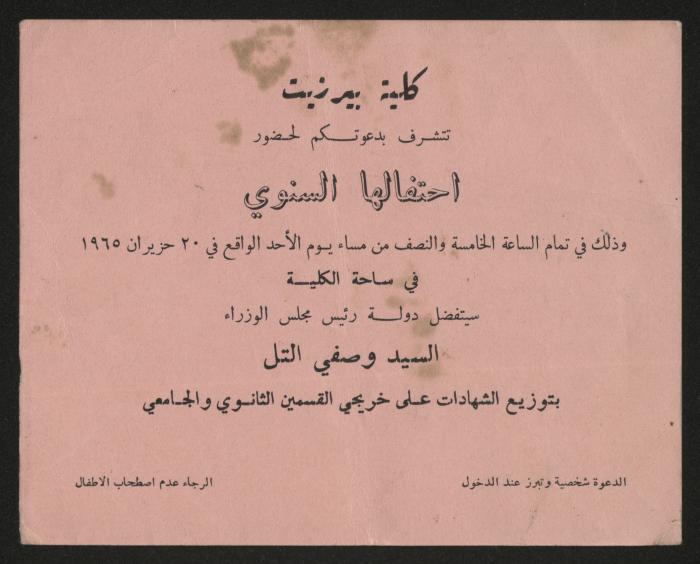 كلية بيرزيت
تتشرف بدعوتكم لحضور
احتفالها السنوي
وذلك في تمام الساعة الخامسة والنصف من مساء يوم الأحد الواقع في ٢٠ حزيران ١٩٦٥
في ساحة الكلية
سيتفضل دولة رئيس مجلس الوزراء
السيد وصفي التل
بتوزيع الشهادات على خريجي القسمين الثانوي والجامعي
الدعوة شخصية وتبرز عند الدخول
الرجاء عدم اصطحاب الاطفال